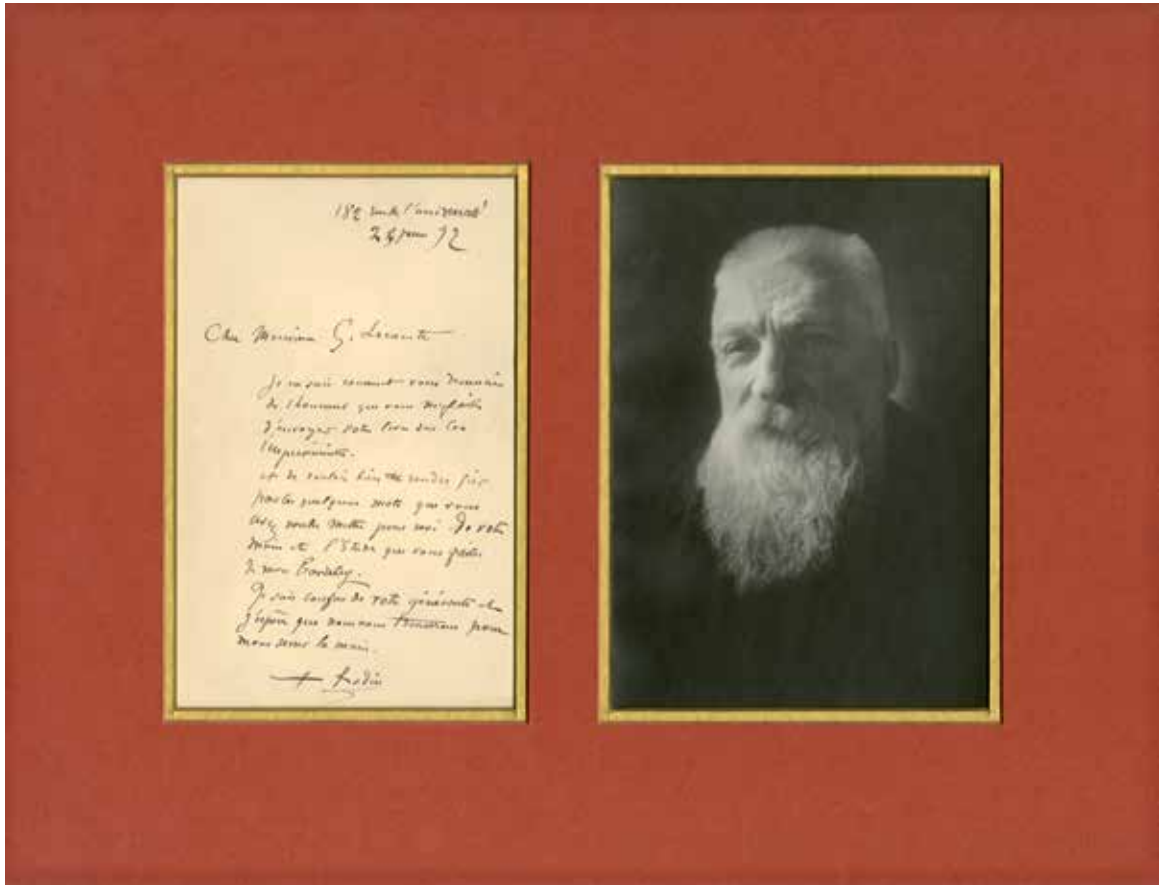 182 rue de l'université
24 juin 92
Cher Monsieur G. Lecomte
Je ne sais comment vous remercier
de l'honneur que vous me faites
d'envoyer votre livre sur les
Impressionnistes.
et de vouloir bien me rendre fier
par les quelques mots que vous
avez voulu mettre pour moi de votre
main et l'Etude que vous faites
de mon
Je suis confus de votre générosité et
j'espère que nous nous trouverons pour
nous serrer la main.
A Rodin